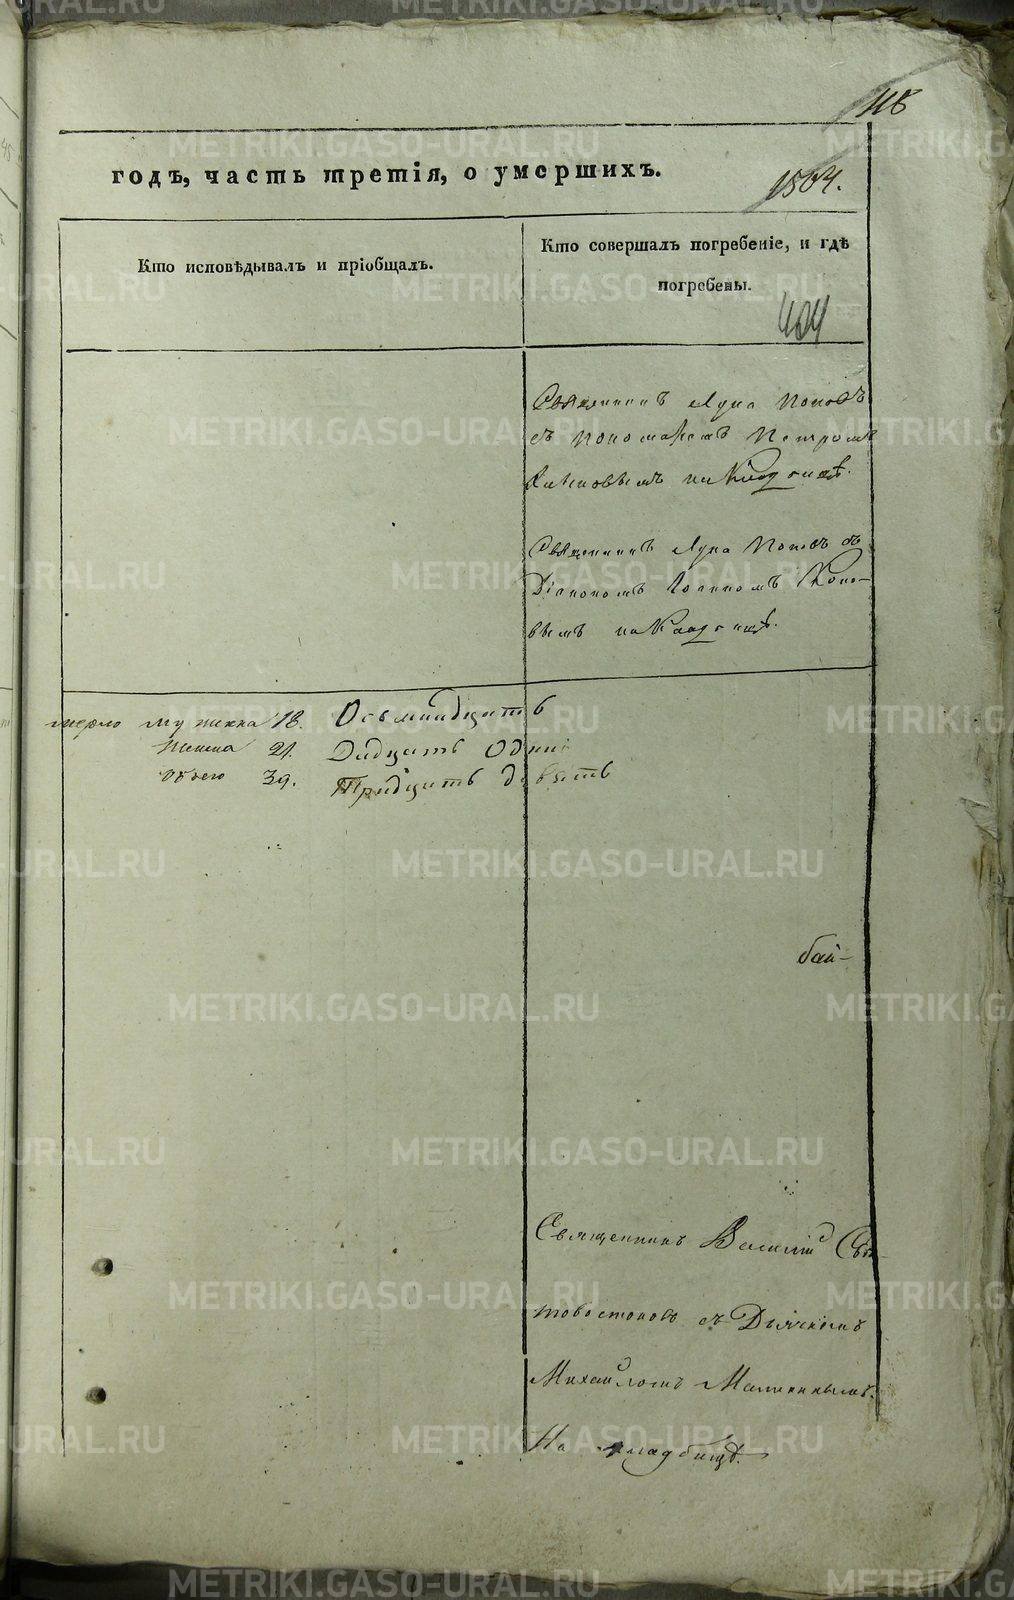 118
годъ, часть третія, о умершихъ.
1504.
Кто исповѣдывалъ и пріобщалъ.
Кто совершалъ погребеніе, и гдѣ
погребены.
404
Священникъ Лука Поповъ
съ пономаремъ Петромъ
на Кладбищѣ.
Священникъ Лука Поповъ съ
Діакономъ Іоанномъ Попо-
вымъ на Кладбищѣ.
мужска 18. Осьмнадцать
женска 21. Двадцать одинъ
обоего 39. Тридцать девять
бай-
Священникъ Василій Свя-
съ Дьячкомъ
Михаиломъ Малининымъ.
На кладбищѣ.
METRIKI.GASO-URAL.RU